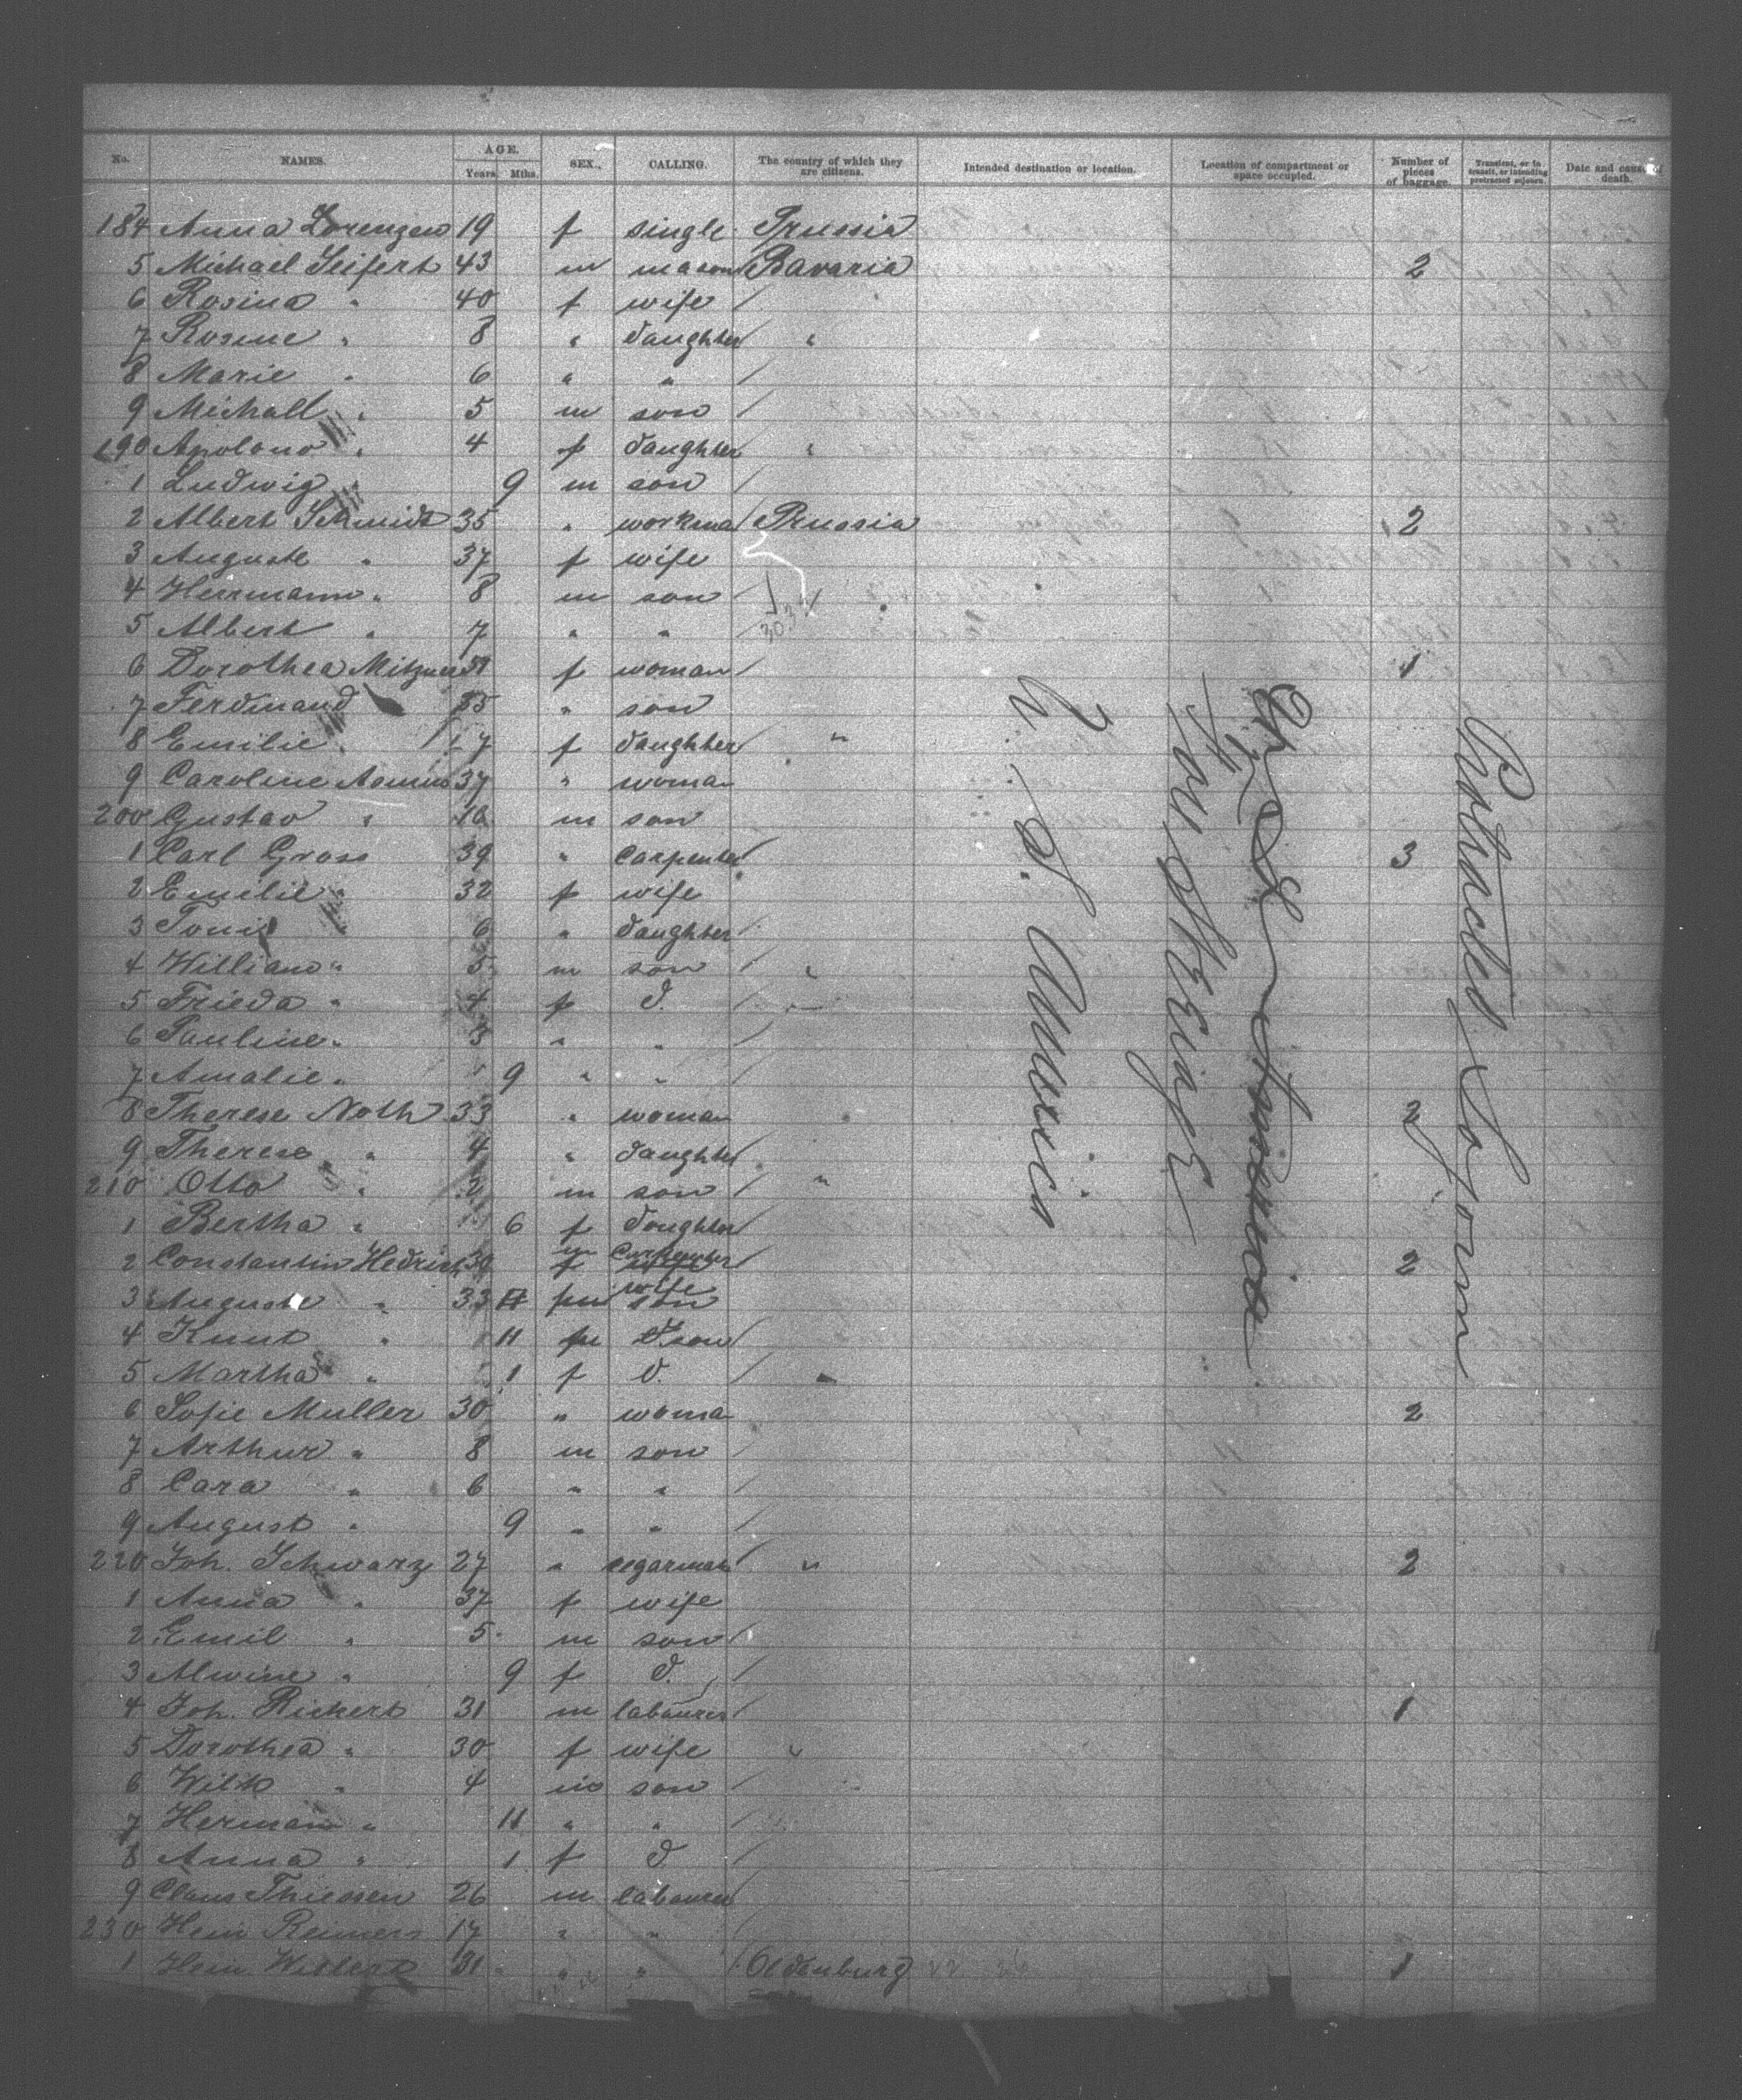 No. NAMES. AGE. Years Mths. SEX. CALLING. The country of which they are citizens. Intended destination or location. Location of compartment or space occupied. Number of pieces of baggage. Transient, or in transit, or intending protracted sojourn. Date and cause of death.
184 Anna Lorenzen 19 f single Prussia
5 Michael Seifert 43 m mason Bavaria 2
6 Rosina " 40 f wife /
7 Rosine " 8 " daughter / "
8 Marie " 6 " " /
9 Michall " 5 m son /
190 Apolono " 4 f daughter "
1 Ludwig " 9 m son /
2 Albert Schmidt 35 " workma Prussia 2
3 Auguste " 37 f wife
4 Herrmann " 8 m son
5 Albert " 7 " "
6 Dorothea 51 f woman / 1
7 Ferdinand " son
8 Emilie " 17 f daughter "
9 Caroline 37 " woman
200 Gustav " m son
1 Carl Gross 39 " carpenter 3
2 Emilie " 32 f wife
3 Toni 6 " daughter
4 William " 5 m son / "
5 Frieda " 4 f d. /
6 Pauline " 3 " "
7 Amalie " 9 " " /
8 Therese Noth 33 " woman 2
9 Therese " 4 " daughter
210 Otto " 2 m son / "
1 Bertha " 6 f daughter
2 Constantin Hedrich 39 m carpenter 2
3 Auguste " 33 f wife
4 Knut " 11 m son /
5 Martha " 1 f d. / "
6 Sofie Muller 30 " woma 2
7 Arthur " 8 m son /
8 Cara " 6 " " /
9 August " 9 " " /
220 Joh. Schwarz 27 " segarmak " 2
1 Anna " 37 f wife
2 Emil " 5 m son /
3 Alwine " 9 f d. /
4 Joh. Rickert 31 m labourer 1
5 Dorothea " 30 f wife "
6 Wilh " 4 m son /
7 Hermann " 11 " "
8 Anna " 1 f d /
9 Claus Thiessen 26 m labourer
230 Hein Reimers 17 " "
1 Hein 31 " " Oldenburg 1
U. S. America
Protracted Sojourn